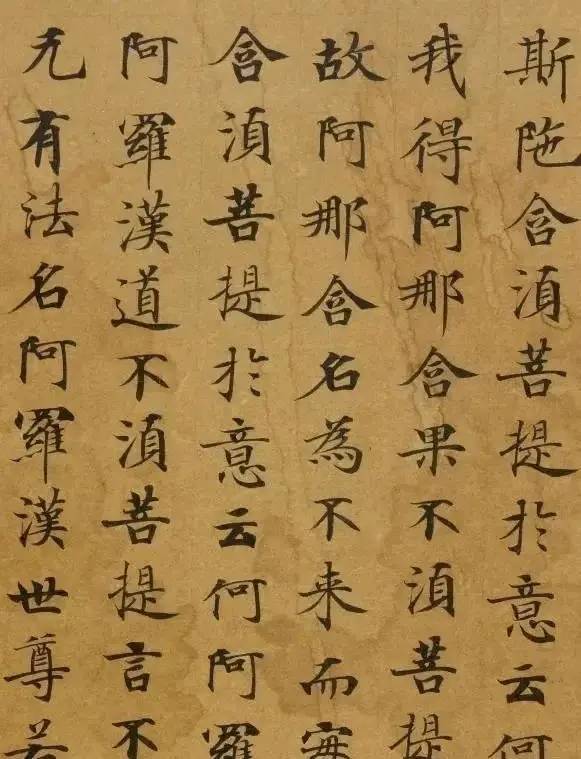 斯陁含湏菩提扵意云何
我得阿那含果不湏菩提
故阿那含名為不来而寔
含湏菩提扵意云何阿羅
阿羅漢道不湏菩提言不
无有法名阿羅漢世尊若